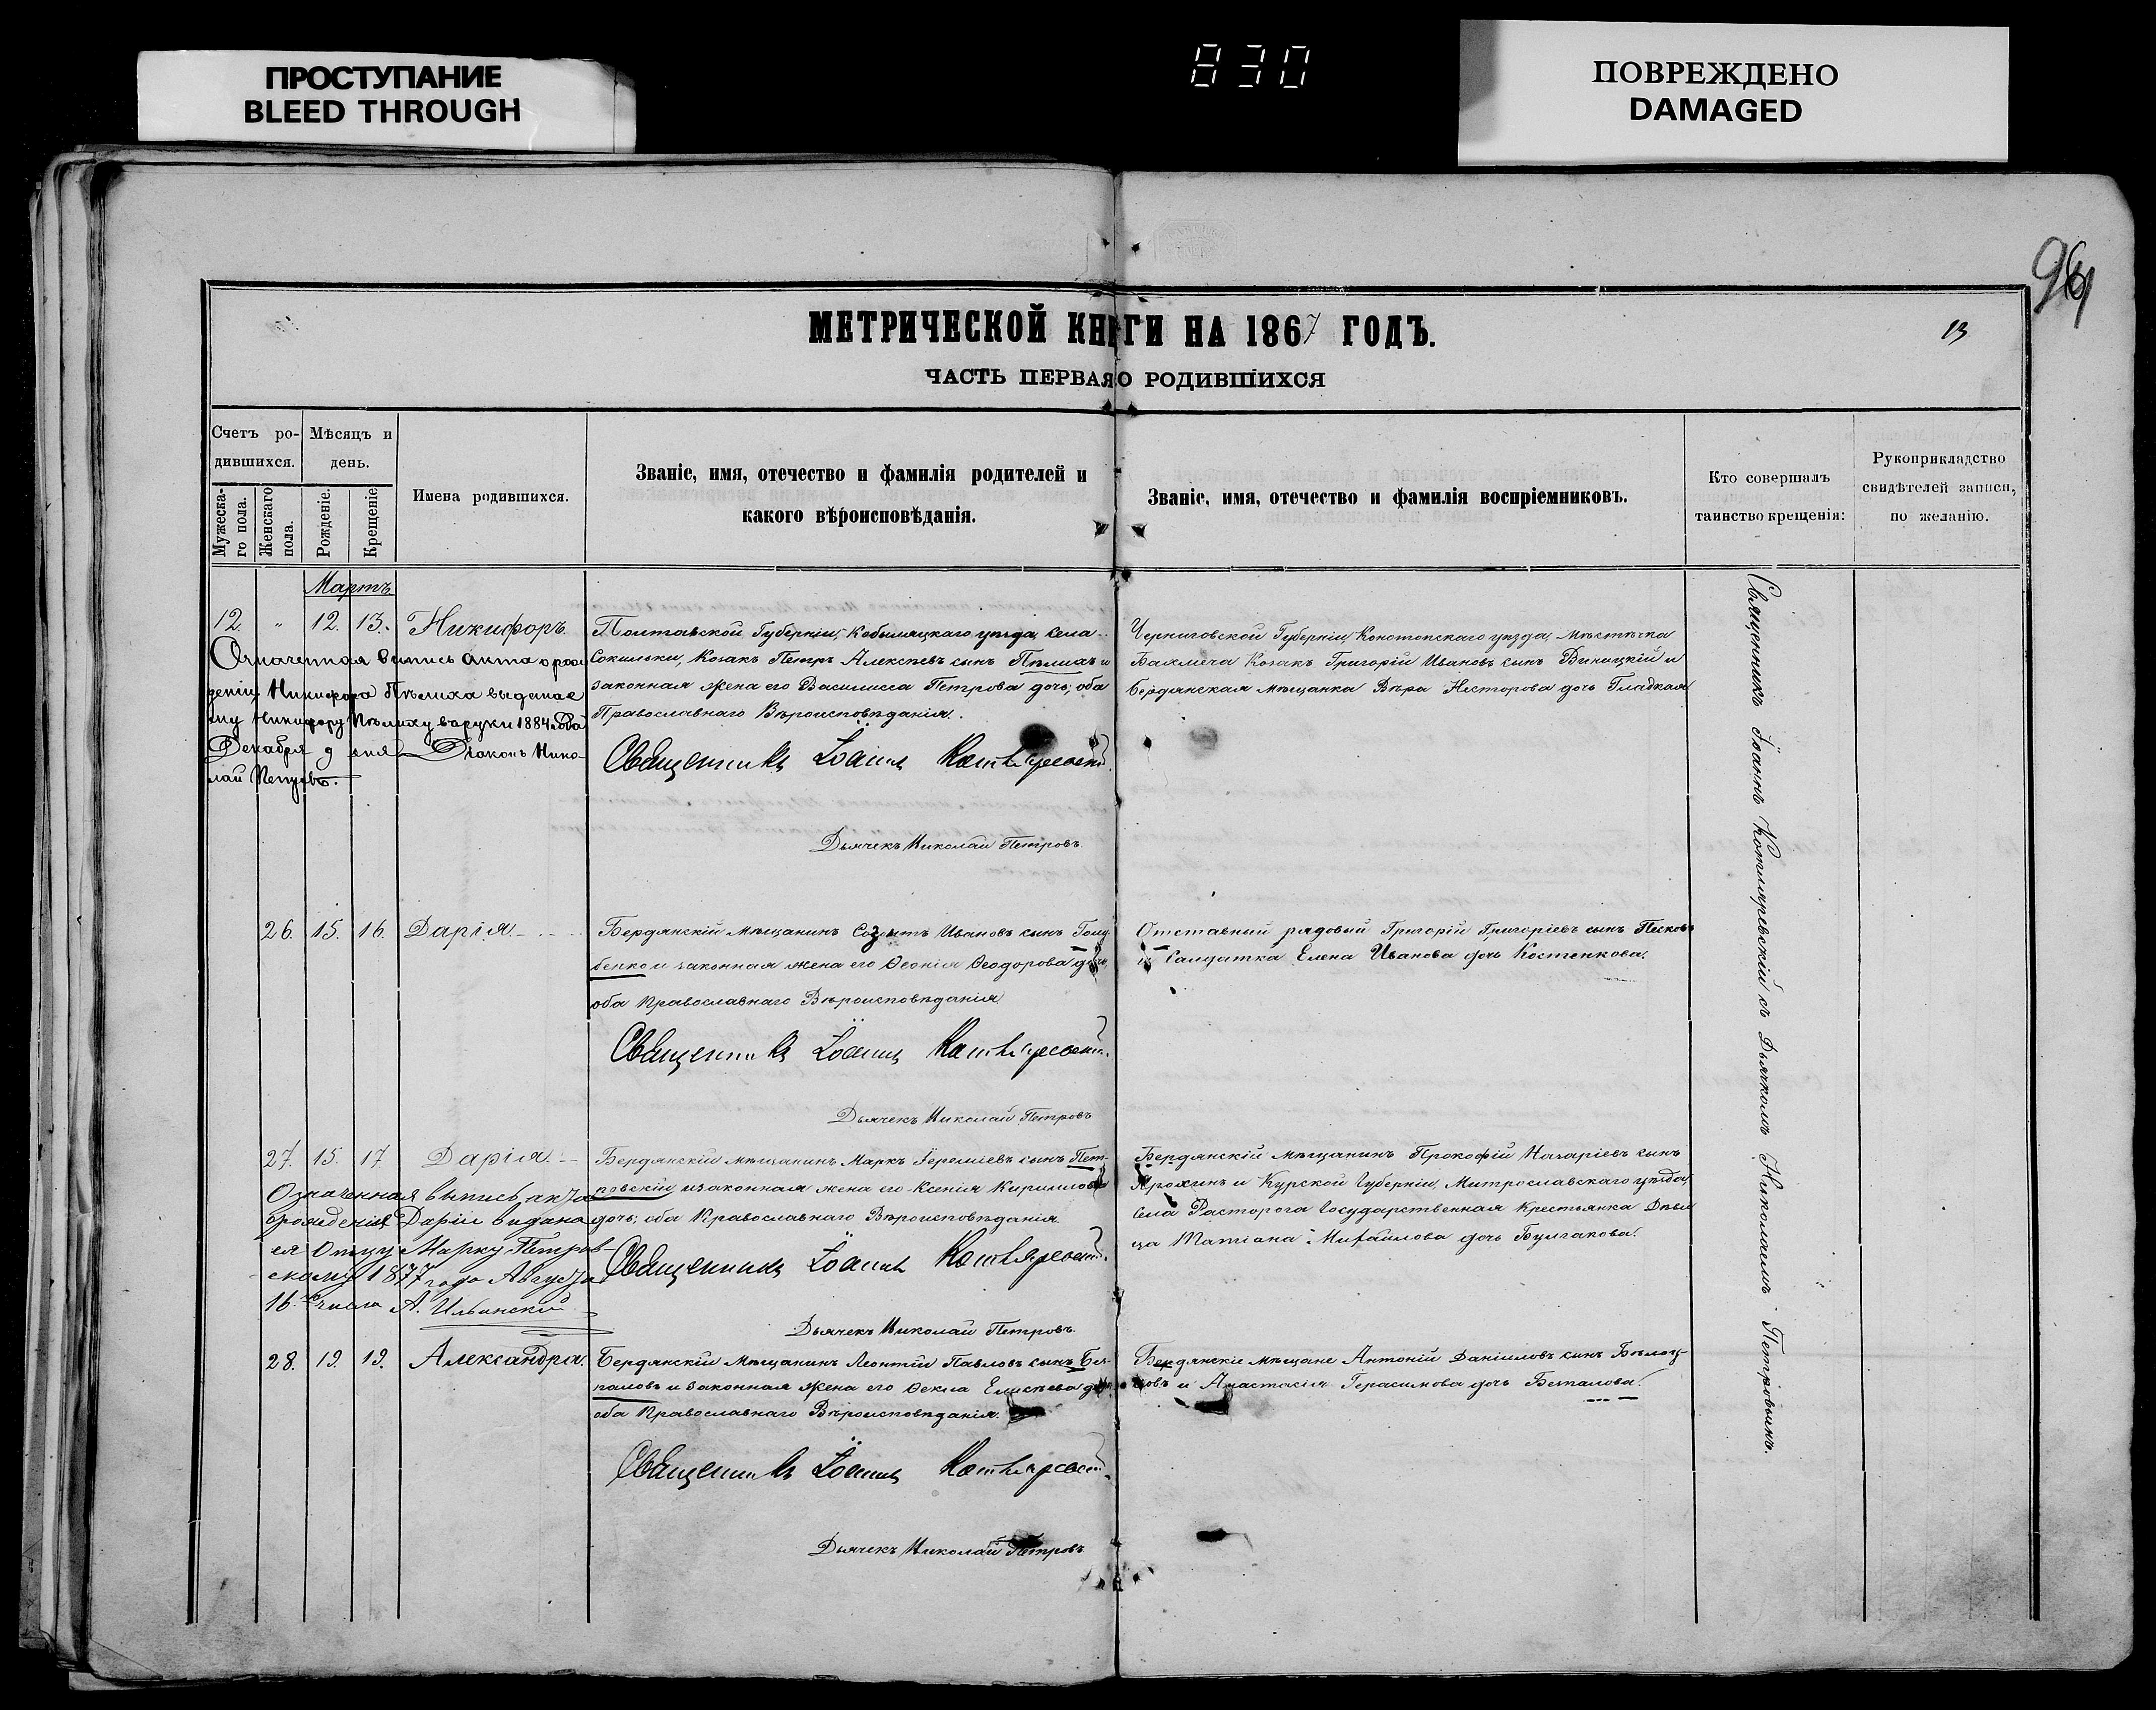 ПРОСТУПАНИЕ
BLEED THROUGH
830
ПОВРЕЖДЕНО
DAMAGED
МЕТРИЧЕСКОЙ КНИГИ НА 1867 ГОДЪ.
13
ЧАСТЬ ПЕРВАЯ О РОДИВШИХСЯ
Счетъ ро-
дившихся.
Мѣсяцъ и
день.
Мужеска-
го пола.
Женскаго
пола.
Рожденіе.
Крещеніе
Имена родившихся.
Званіе, имя, отечество и фамилія родителей и
какого вѣроисповѣданія.
Званіе, имя, отечество и фамилія воспріемниковъ.
Кто совершалъ
таинство крещенія:
Рукоприкладство
свидѣтелей записи,
по желанію.
Мартъ
12. " 12. 13. Никифоръ.
Означенная выпись акта о рож
деніи Никифора Пѣлиха выдана е
му Никифору Пѣлиху в руки 1884 года
Декабря 9 дня Діаконъ Нико-
лай
Полтавской Губерніи, Кобыляцкаго уѣзда, Села
Сокильки, Козакъ Петръ Алексѣевъ сынъ Пѣлихъ и
законная жена его Василисса Петрова дочь, оба
Православнаго Вѣроисповѣданія.
Священникъ Іоаннъ Котляревскій
Дьячекъ Николай Петровъ
Черниговской Губерніи, Конотопскаго уѣзда, Мѣстечка
Бахмача Козакъ Григорій Ивановъ сынъ Виницкій и
Бердянская мѣщанка Вѣра Несторова дочь Гладкая
26. 15. 16. Дарія.
Бердянскій мѣщанинъ Созонтъ Ивановъ сынъ Голу
бенко и законная жена его Ѳеонія Ѳеодорова дочь,
оба Православнаго Вѣроисповѣданія
Священникъ Іоаннъ Котляревскій
Дьячекъ Николай Петровъ
Отставный рядовый Григорій Григоріевъ сынъ Песковъ
и Салдатка Елена Иванова дочь Костенкова.
27. 15. 17 Дарія.
Означенная выпись акта
о рожденія Даріи выдана
ея Отцу Марку Петров-
скому 1877 года Августа
16.го числа А. Ильинскій
Бердянскій мѣщанинъ Маркъ Іереміевъ сынъ Пет-
ровскій и законная жена его Ксенія Кириллова
дочь, оба Православнаго Вѣроисповѣданія
Священникъ Іоаннъ Котляревскій
Дьячекъ Николай Петровъ
Бердянскій мѣщанинъ Прокофій Назаріевъ сынъ
Ярохинъ и Курской Губерніи, Митрославскаго уѣзда,
Села Расторога Государственная Крестьянка Дѣви
ца Матіана Михайлова дочь Булгакова.
28. 19. 19. Александра.
Бердянскій Мѣщанинъ Леонтій Павловъ сынъ Без-
паловъ и законная жена его Ѳекла Елисѣева дочь
оба Православнаго Вѣроисповѣданія.
Священникъ Іоаннъ Котляревскій
Дьячекъ Николай Петровъ
Бердянскіе мѣщане Антоній Даніиловъ сынъ Бѣлоц-
ковъ и Анастасія Герасимова дочь Беспалова.
Священникъ Іоаннъ Котляревскій съ Дьячкомъ Николаемъ Петровымъ.